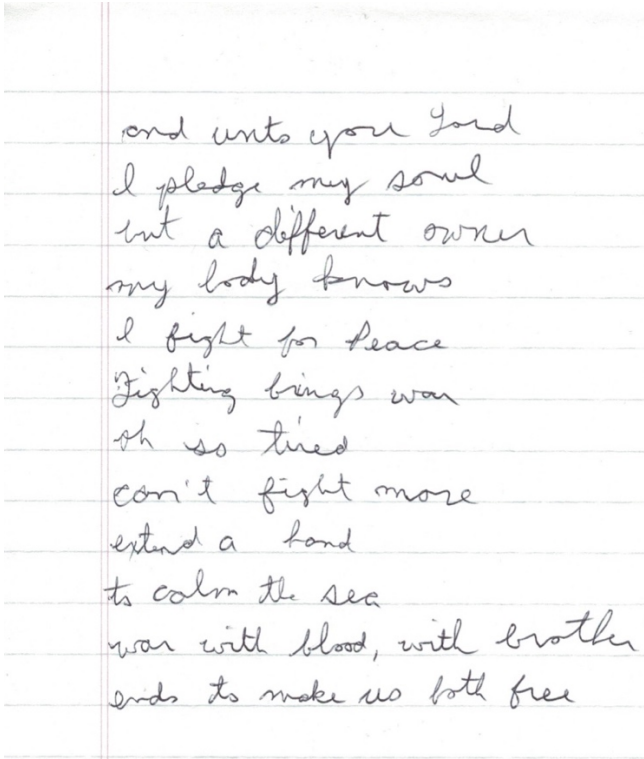 and unto you Lord
I pledge my soul
but a different owner
my body knows
I fight for Peace
Fighting brings war
oh so tired
can't fight more
extend a hand
to calm the sea
war with blood, with brother
ends to make us both free